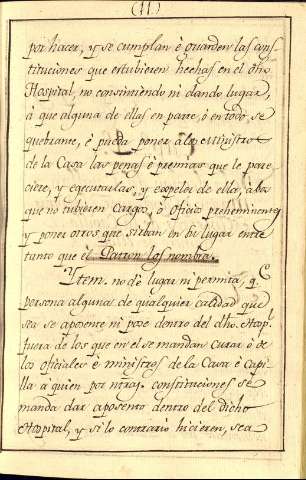 (11)
por hacer, y se cumplan è guarden las cons-
tituciones que estubieren hechas en el dho.
Hospital, no consintiendo ni dando lugar,
à que alguna de ellas en parte, ò en todo, se
quebrante, è pueda poner à los Ministros
de la Casa las penas è premias que le pare-
ciere, y egecutarlas, y espeler de ella, à los
que no tubieren cargos, ò oficio preheminentes
y poner otros que sirban en su lugar entre
tanto que el Patron los nombra.
Ytem. no dè lugar ni permita, q.e
persona alguna de qualquier calidad que
sea se aposente ni pose dentro del dho. Hosp.l
fuera de los que en el se mandan curar ò de
los oficiales è ministros de la Casa è Capi-
lla à quien por ntras. constituciones se
manda dar aposento dentro del dicho
Hospital, y si lo contrario hicieren, sea